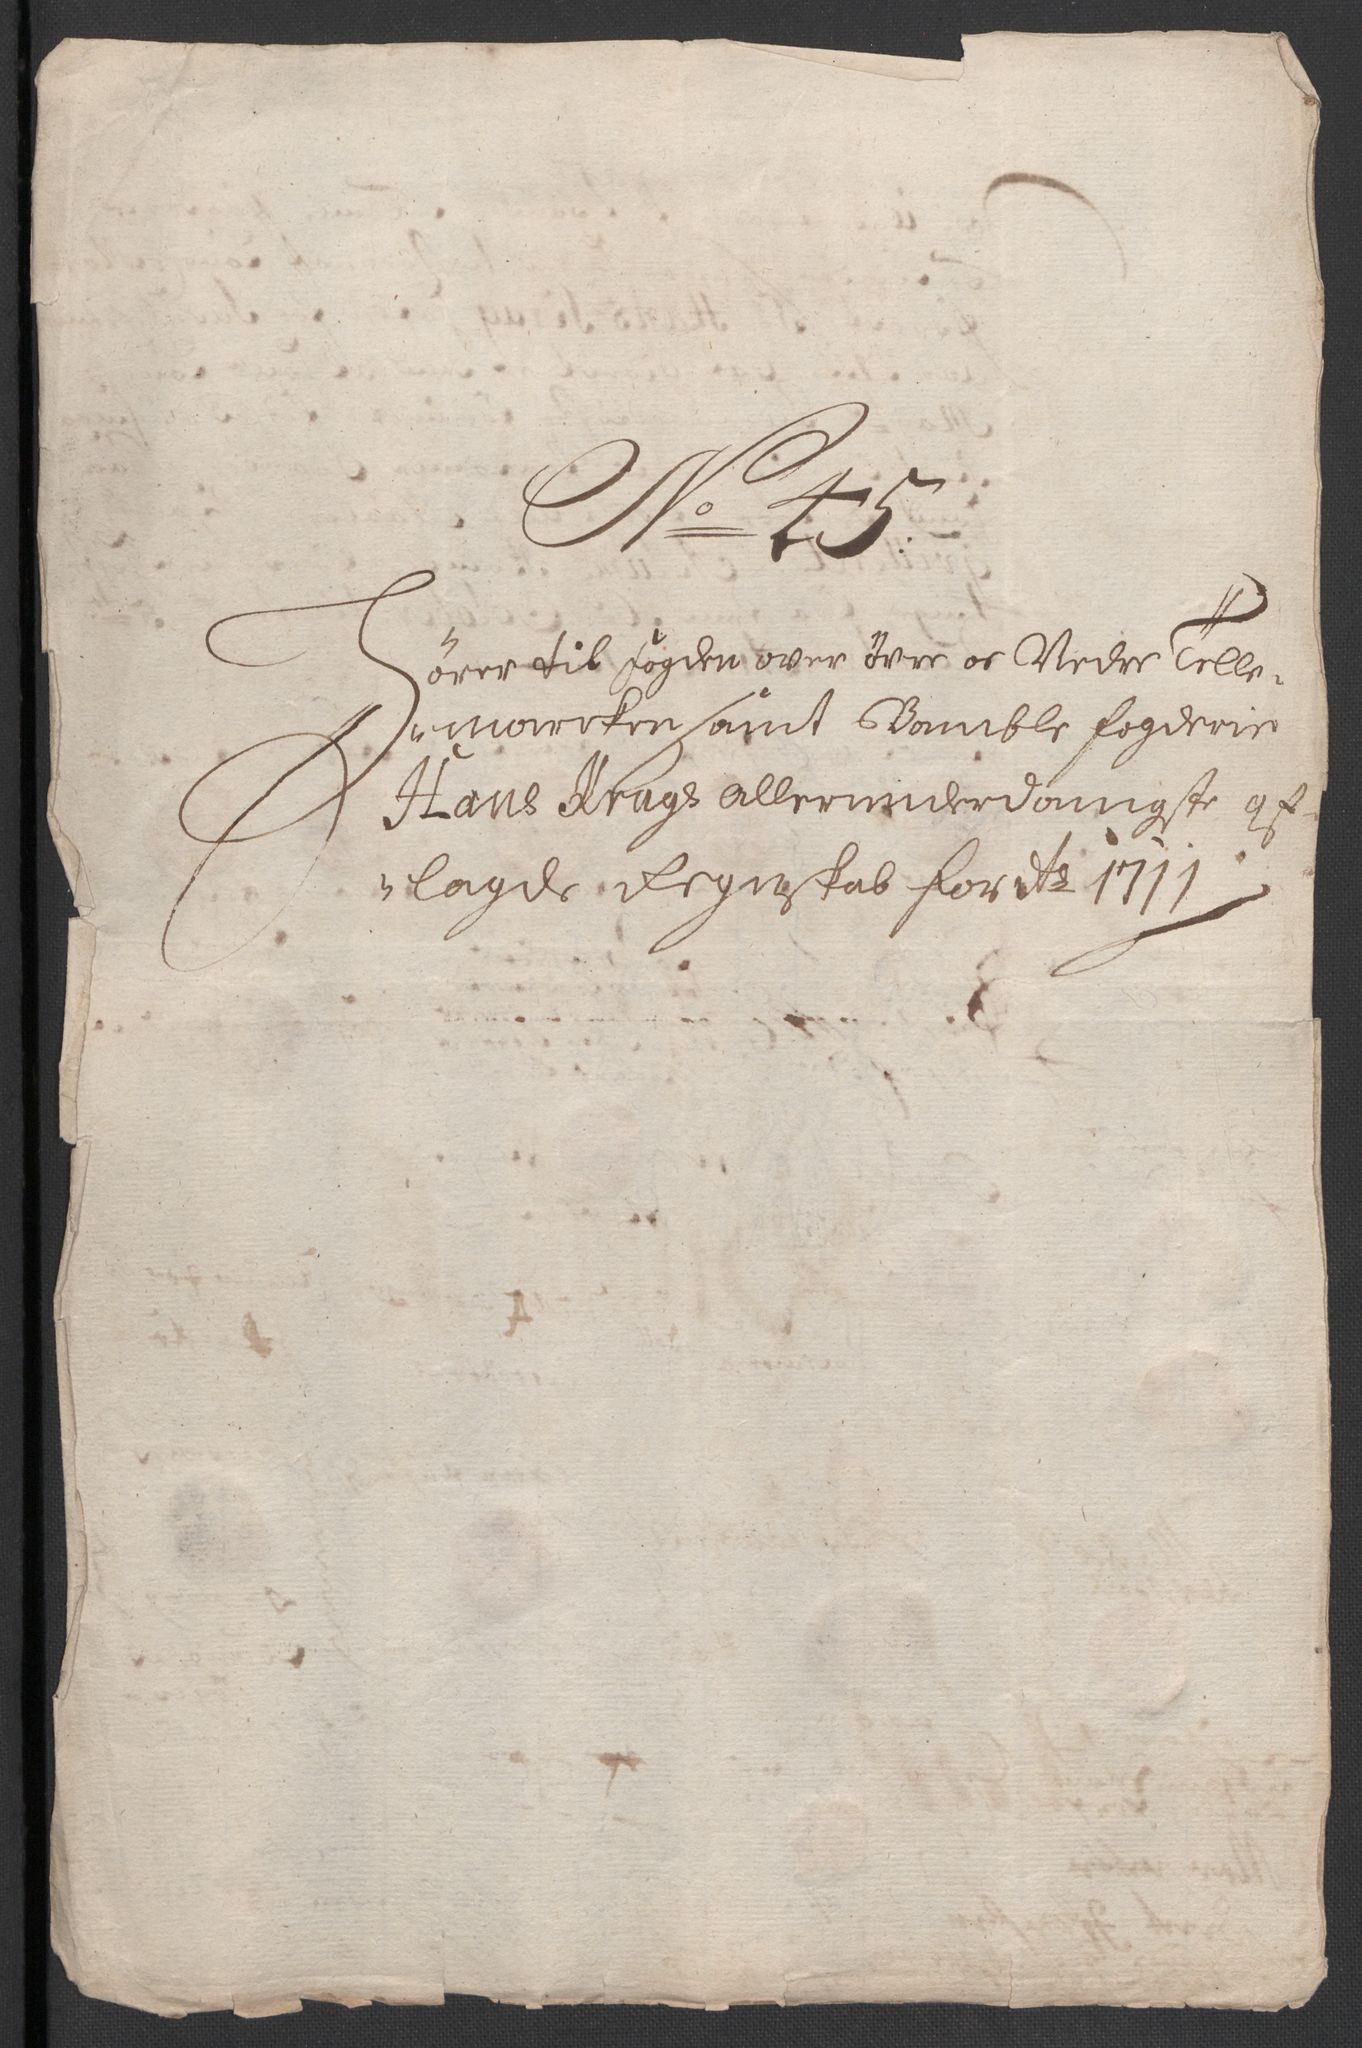 No 45.
Hörer til fogden over öfre oc Nedre Telle-
-marcken samt Bamble fogderie
Hans Krags allerunderdanigste af-
-lagde Regenskab for Ao 1711